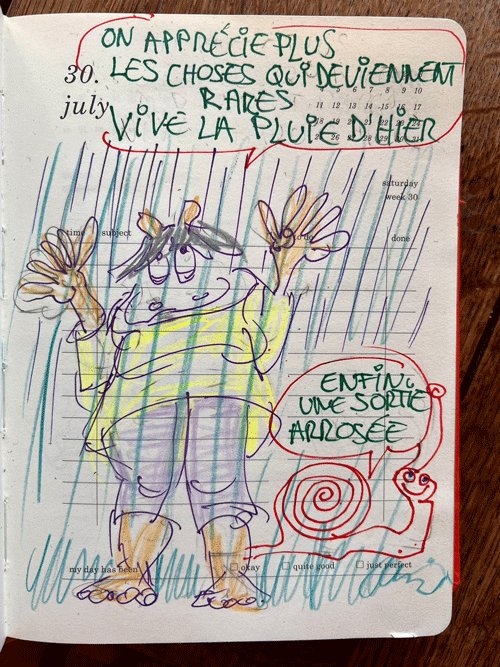 ON APPRÉCIE PLUS
30.
LES CHOSES QUI DEVIENNENT
july
RARES
VIVE LA PLUIE D'HIER
8 9 10
11 12 13 14 15 16 17
saturday
week 30
time subject
done
ENFIN
UNE SORTIE
ARROSÉE
my day has been
okay quite good just perfect